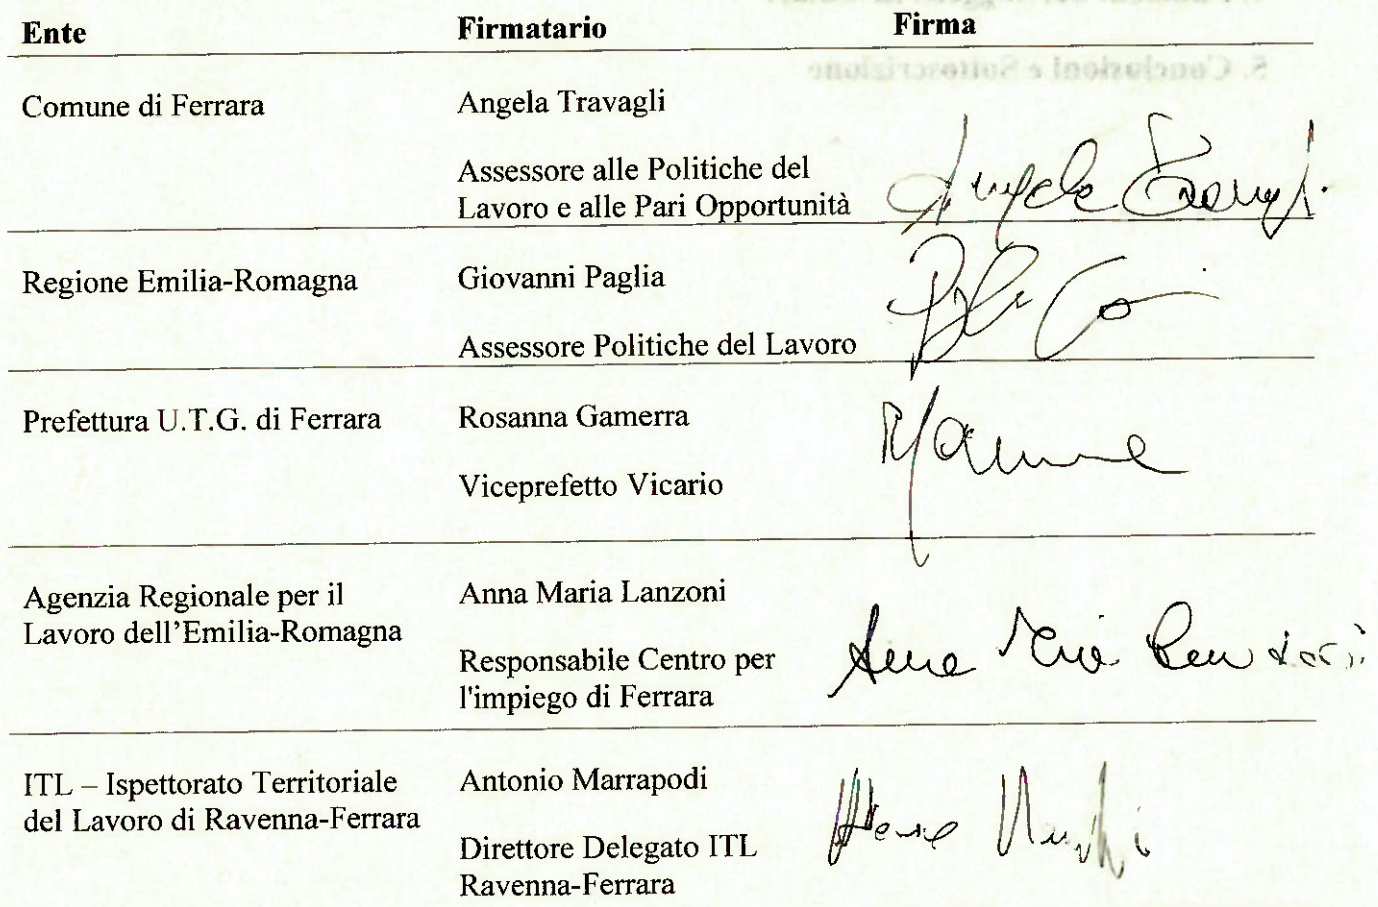 Ente Firmatario Firma
5. Conclusioni e Sottoscrizione
Comune di Ferrara Angela Travagli
Assessore alle Politiche del
Lavoro e alle Pari Opportunità
Angela Travagli
Regione Emilia-Romagna Giovanni Paglia
Assessore Politiche del Lavoro
Prefettura U.T.G. di Ferrara Rosanna Gamerra
Viceprefetto Vicario
Agenzia Regionale per il
Lavoro dell'Emilia-Romagna
Anna Maria Lanzoni
Responsabile Centro per
l'impiego di Ferrara
Anna Maria Lanzoni
ITL – Ispettorato Territoriale
del Lavoro di Ravenna-Ferrara
Antonio Marrapodi
Direttore Delegato ITL
Ravenna-Ferrara